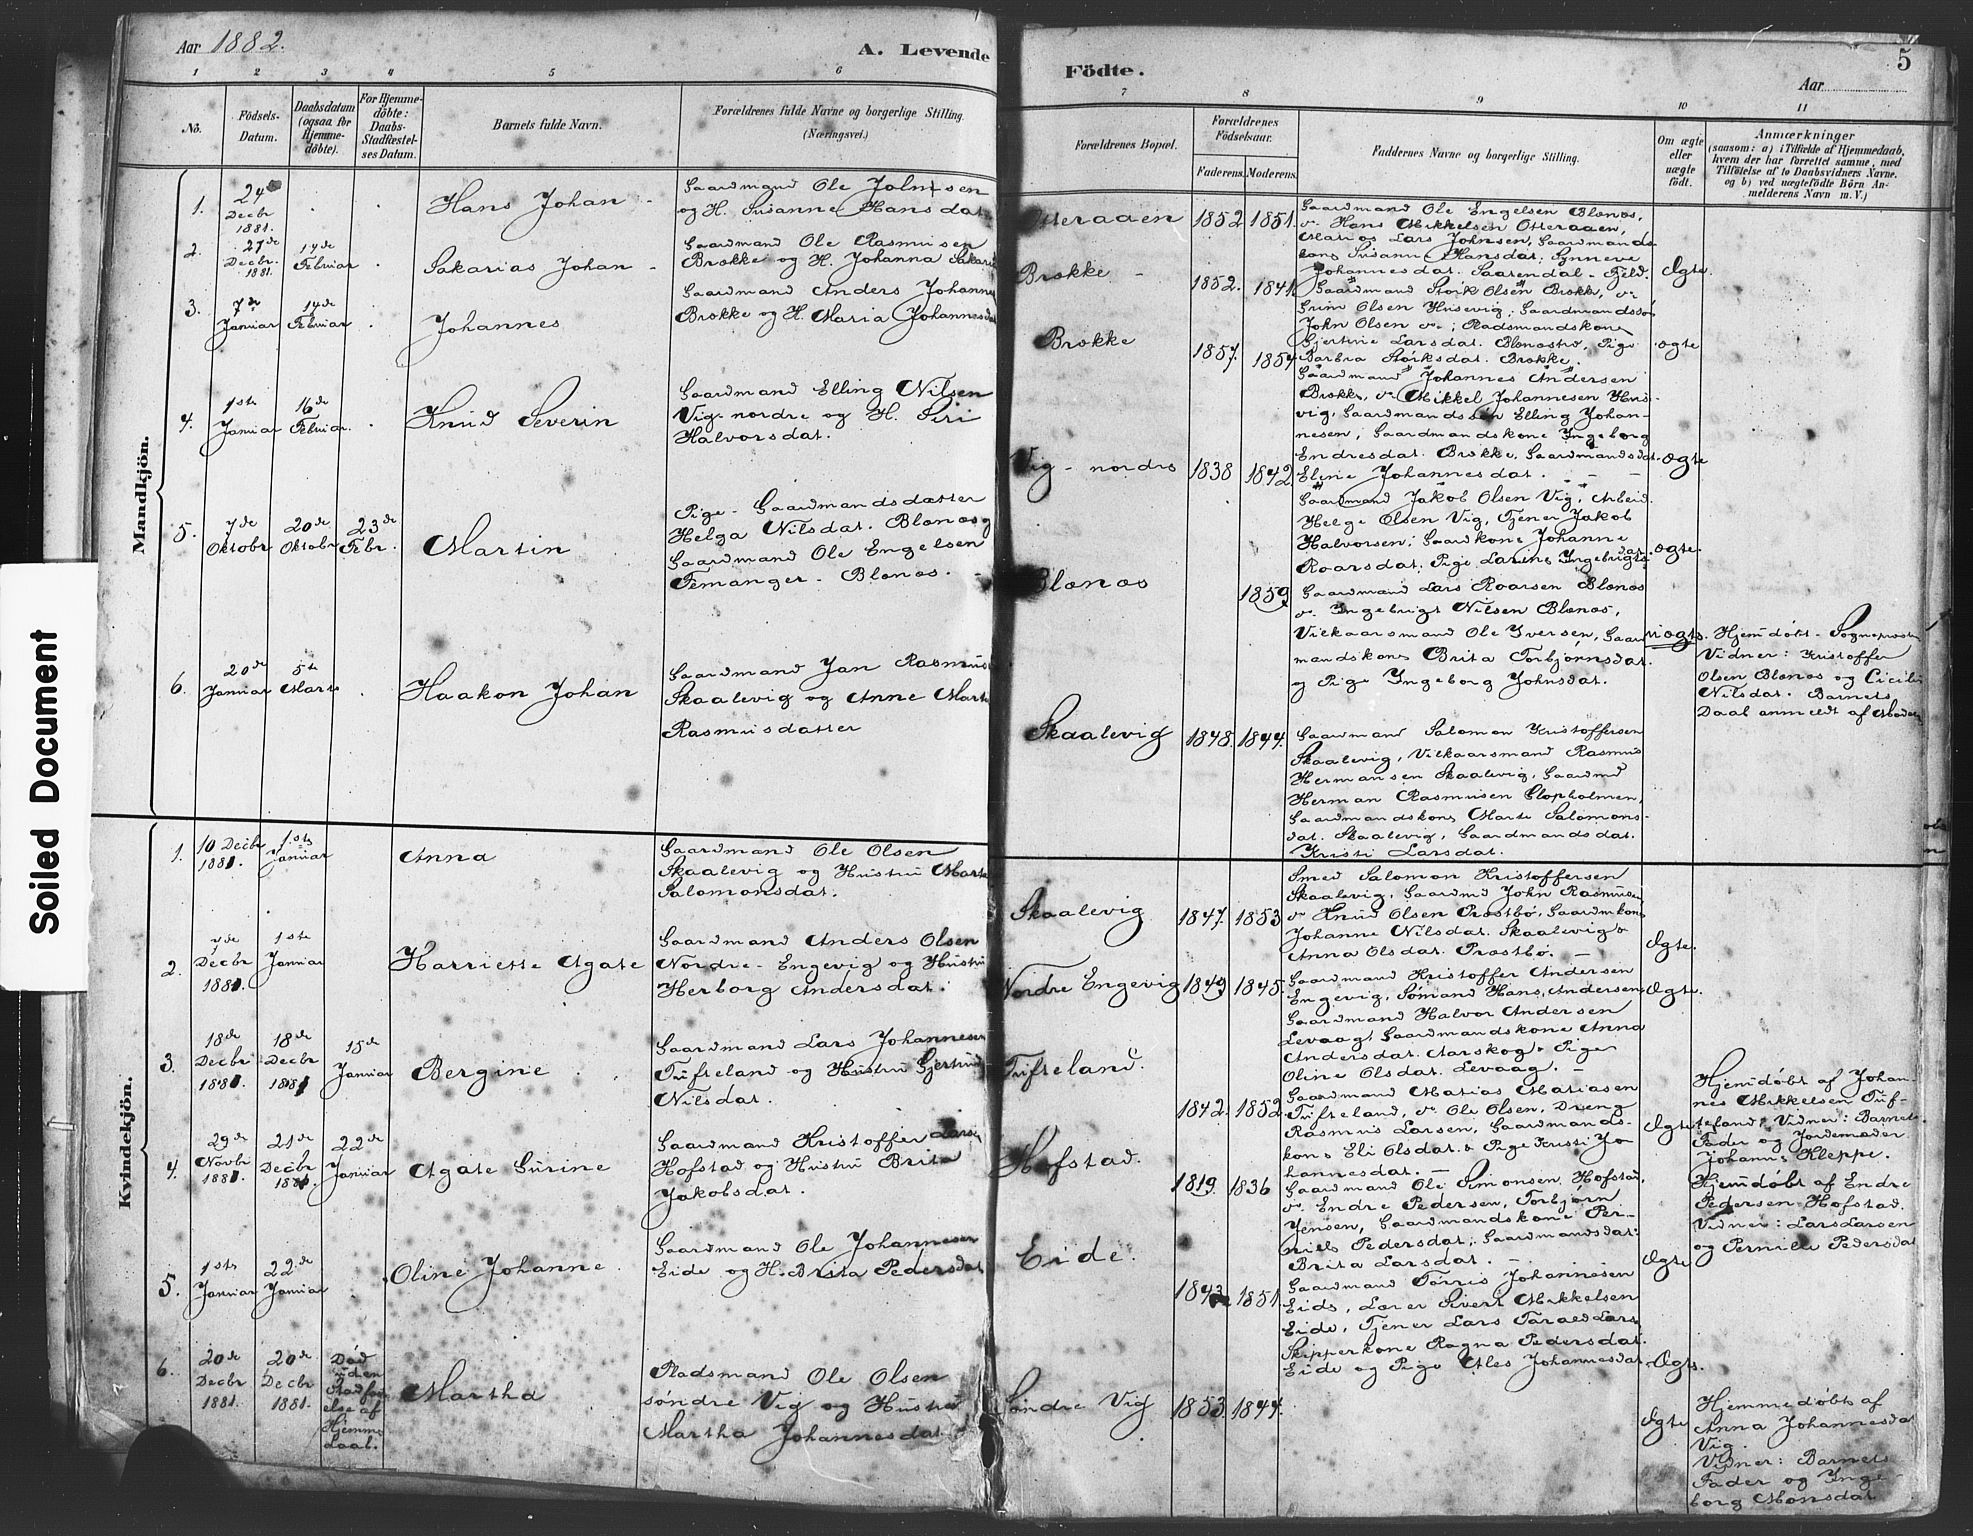 Aar 1882.
A. Levende
Födte.
Aar
5
1 2 3 4 5 6
7 8 9 10 11
No.
Födsels-
Datum.
Daabsdatum
(ogsaa for
Hjemme-
døbte).
For Hjemme-
döbte:
Daabs-
Stadfæstel-
ses Datum.
Barnets fulde Navn.
Forældrenes fulde Navne og borgerlige Stilling.
(Næringsvei.)
Forældrenes Bopæl.
Forældrenes
Födselsaar.
Faderens. Moderens.
Faddernes Navne og borgerlige Stilling.
Om ægte
eller
uægte
født.
Anmærkninger
(saasom: a) i Tilfælde af Hjemmedaab,
hvem der har forrettet samme, med
Tilføielse af to Daabsvidners Navne.
og b) ved uægtefödte Börn An-
melderens Navn m.V.)
Mandkjön.
1.
24
Decbr
1881.
Hans Johan
Gaardmand Ole Johnsen
og H. Susanne Hansdat
2.
27de
Decbr.
1881.
14de
Februar
Sakarias Johan
Gaardmand Ole Rasmusen
Brække og H. Johanna Sakari
3.
7de
Januar
14de
Februar
Johannes
Gaardmand Anders Johanne
Brække og H. Maria Johannesdat
4.
1ste
Januar
16de
Februar.
Knud Severin
Gaardmand Elling Nilsen
Vig- nordre og H. Siri
Halvorsdat.
5.
7de
Oktobr
20de
Oktobr
23de
Febr.
Martin
Pige- Gaardmandsdatter
Helga Nilsdat. Blænæs og
Gaardmand Ole Engelsen
Femanger- Blænæs.
6.
20de
Januar
5te
Marts
Haakon Johan
Gaardmand Jan Rasmus
Skaalevig og Anne Marta
Rasmusdatter
Kvindekjön.
1.
10 Decbr
1881.
1ste
Januar
Anna
Gaardmand Ole Olsen
Skaalevig og Hustru Marta
Salomonsdat.
2.
Decbr
1881.
1ste
Januar
Harriette Agate
Gaardmand Anders Olsen
Nordre- Engevig og Hustru
Herborg Andersdat.
3.
18de
Decbr
1881.
18de
Decbr
1881
15de
Januar
Bergine
Gaardmand Lars Johannesen
Tufteland og Hustru Gjertrud
Nilsdat.
4.
29de
Novbr
1881.
21de
Decbr
1881.
22de
Januar
Agate Gurine
Gaardmand Kristoffer Larsen
Hofstad og Hustru Brita
Jakobsdat.
5.
1ste
Januar
22de
Januar
Oline Johanne
Gaardmand Ole Johannesen
Eide og H. Brita Pedersdat
6.
20de
Decbr
1881.
20de
Decbr
1881.
Død
uden
Stadfæst
else af
Hjemme
daab.
Martha
Pladsmand Ole Olsen
søndre Vig og Hustru
Martha Johannesdat
Otteraaen 1852 1851.
Gaardmand Ole Engelsen Blænæs,
Hans Mikkelsen Otteraaen,
Matias Lars Johnsen, Gaardmands
kone Susanne Hansdat. Synneve
Johannesdat. Saarendal- Fjeld.
Ægte
Brække 1852. 1841.
Gaardmand Størk Olsen Brække,
Grim Olsen Husevig, Gaardmandssøn
John Olsen; Pladsmandskone
Gjertine Larsdat. Blænæstrø, Pige
Barbra Størksdat. Brække.
ægte
Brække 1857. 1854
Gaardmand Johannes Andersen
Brække, Mikkel Johannesen Hus-
vig, Gaardmandssøn Elling Johan-
nesen; Gaardmandskone Ingeborg
Endresdat. Brække, Gaardmandsdat.
Eline Johannesdat.
ægte
Vig- nordre 1838 1842.
Gaardmand Jakob Olsen Vig, Arbeid.
Helge Olsen Vig, Tjener Jakob
Halvorsen; Gaardkone Johanne
Roarsdat. Pige Larine Ingebrigts-
dat.
ægte.
Blænæs 1859.
Gaardmand Lars Roarsen Blænæs
Ingebrigt Nilsen Blænæs,
Vilkaarsmand Ole Iversen, Gaard
mandskone Brita Torbjørnsdat.
og Pige Ingeborg Johnsdat.
uægte.
Hjemdøbt- Sognepræsten
Vidner: Kristoffer
Olsen Blænæs og Cicilie
Nilsdat. Barnets
Daab anmeldt af Moderen
Skaalevig 1848. 1844.
Gaardmand Salomon Kristoffersen
Skaalevig, Vilkaarsmand Rasmus
Hermansen Skaalevig, Gaardmd
Herman Rasmusen Glopholmen,
Gaardmandskone Marte Salomons-
dat. Skaalevig, Gaardmandsdat.
Kristi Larsdat.
Skaalevig 1847. 1853
Smed Salomon Kristoffersen
Skaalevig, Gaardmd John Rasmusen
Knud Olsen Præstbø, Gaardmkone
Johanne Nilsdat. Skaalevig &
Anna Olsdat. Præstbø.
Ægte.
Nordre Engevig 1849 1845.
Gaardmand Kristoffer Andersen
Engevig, Sømand Hans Andersen
Gaardmand Halvor Andersen
Levaag, Gaardmandskone Anna
Andersdat. Aarskog & Pige
Oline Olsdat. Levaag.
Ægte.
Tufteland. 1842. 1852
Gaardmand Matias Matiasen
Tufteland, Ole Olsen, Dreng
Rasmus Larsen, Gaardmands-
kone Eli Olsdat. & Pige Kristi Jo
hannesdat.
Ægte
Hjemdøbt af Johan-
nes Mikkelsen Tuf-
tefland, Vidner: Barnets
Fader og Jordemoder
Johanne Kleppe.
Hofstad. 1819. 1836
Gaardmand Ole Simonsen Hofstad,
Endre Pedersen, Torbjørn
Jensen, Gaardmandskone Per-
nille Pedersdat, Gaardmandsdat:
Brita Larsdat.
Ægte
Hjemdøbt af Endre
Pedersen Hofstad.
Vidner: Lars Larsen
og Pernille Pedersdat
Eide. 1843 1851
Gaardmand Tørris Johannesen
Eide, Lærer Sivert Mikkelsen
Eide, Tjener Lars Taraldsen
Skipperkone Ragna Pedersdat.
Eide og Pige Atles Johannesdat
Ægte.
Søndre Vig 1853. 1844.
Ægte
Hjemmedøbt af
Anna Johannesdat
Vig.
Vidner: Barnets
Fader og Inge-
borg Monsdat
Soiled Document